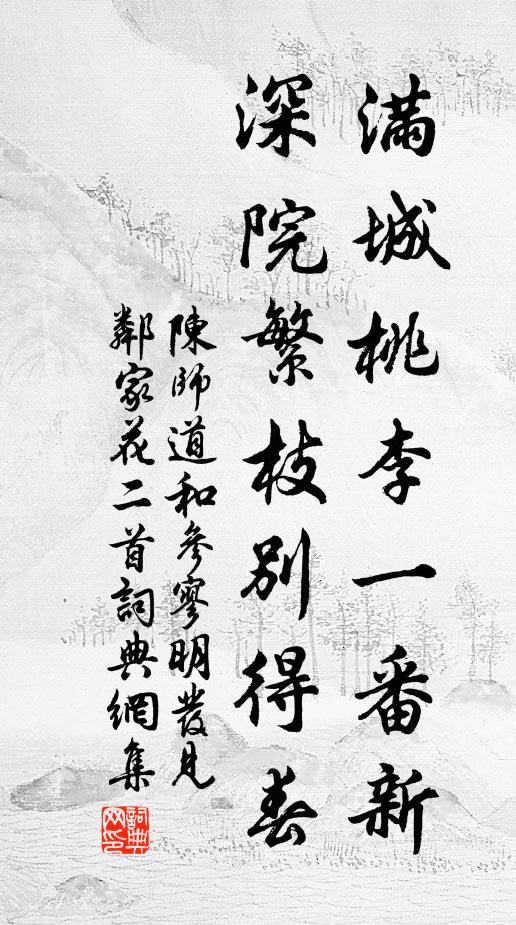 滿城桃李一番新
深院繁枝別得春
陳師道和參寥明發見
鄰家花二首詞典網集
詞典網印